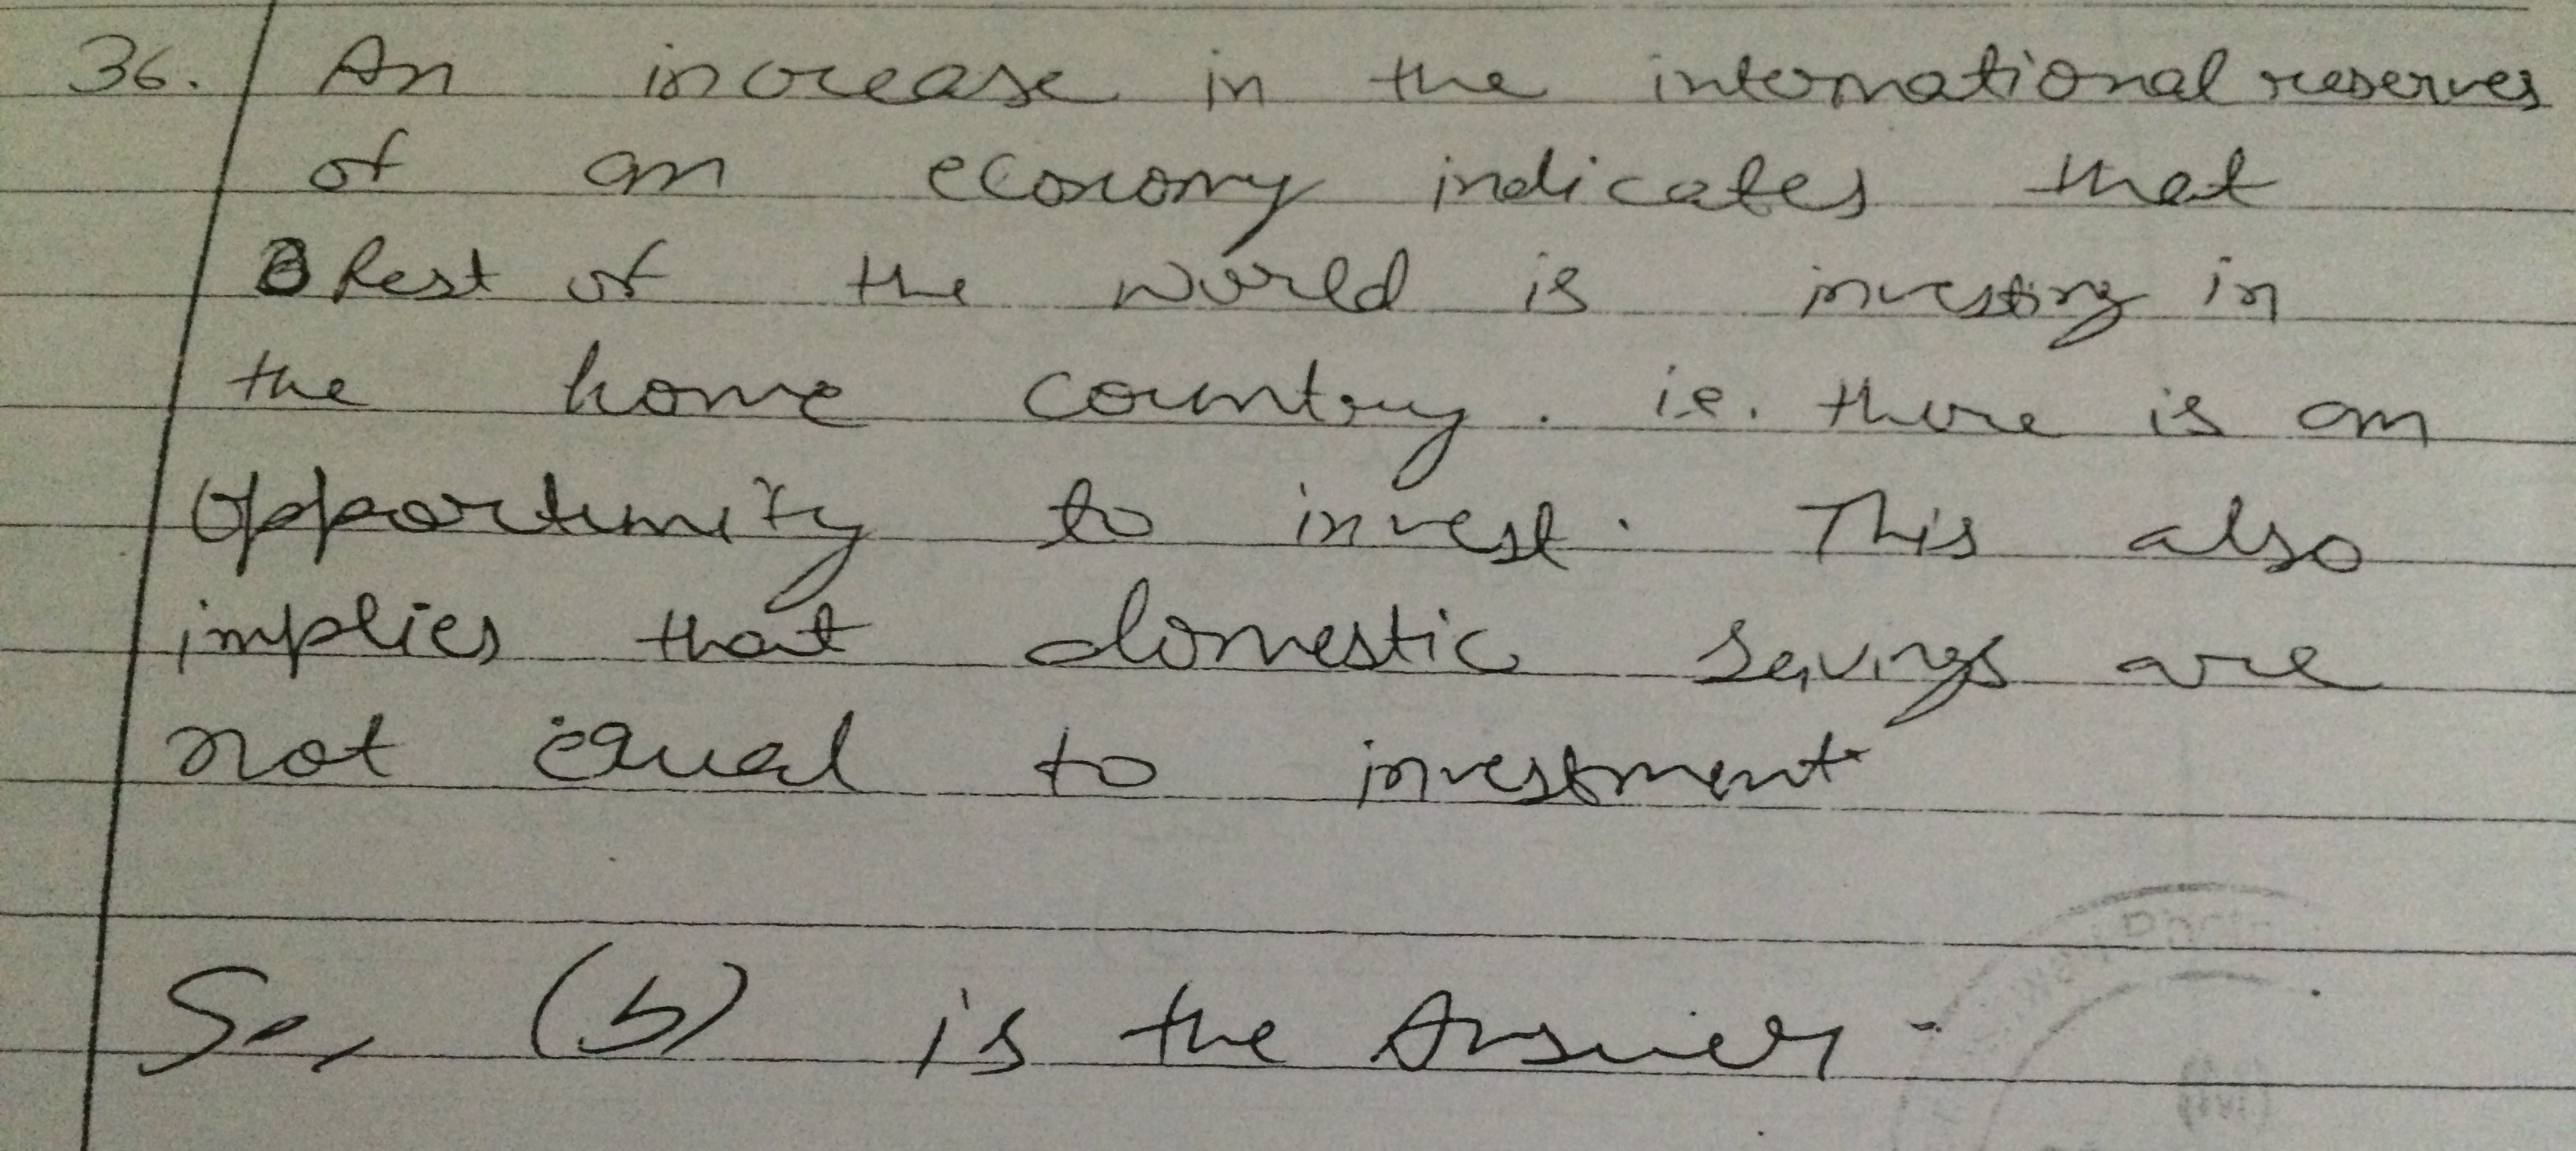 36. An increase in the international reserves
of an economy indicates that
Rest of the world is investing in
the home country. i.e. there is an
opportunity to invest. This also
implies that domestic savings are
not equal to investment
So, (b) is the Answer.